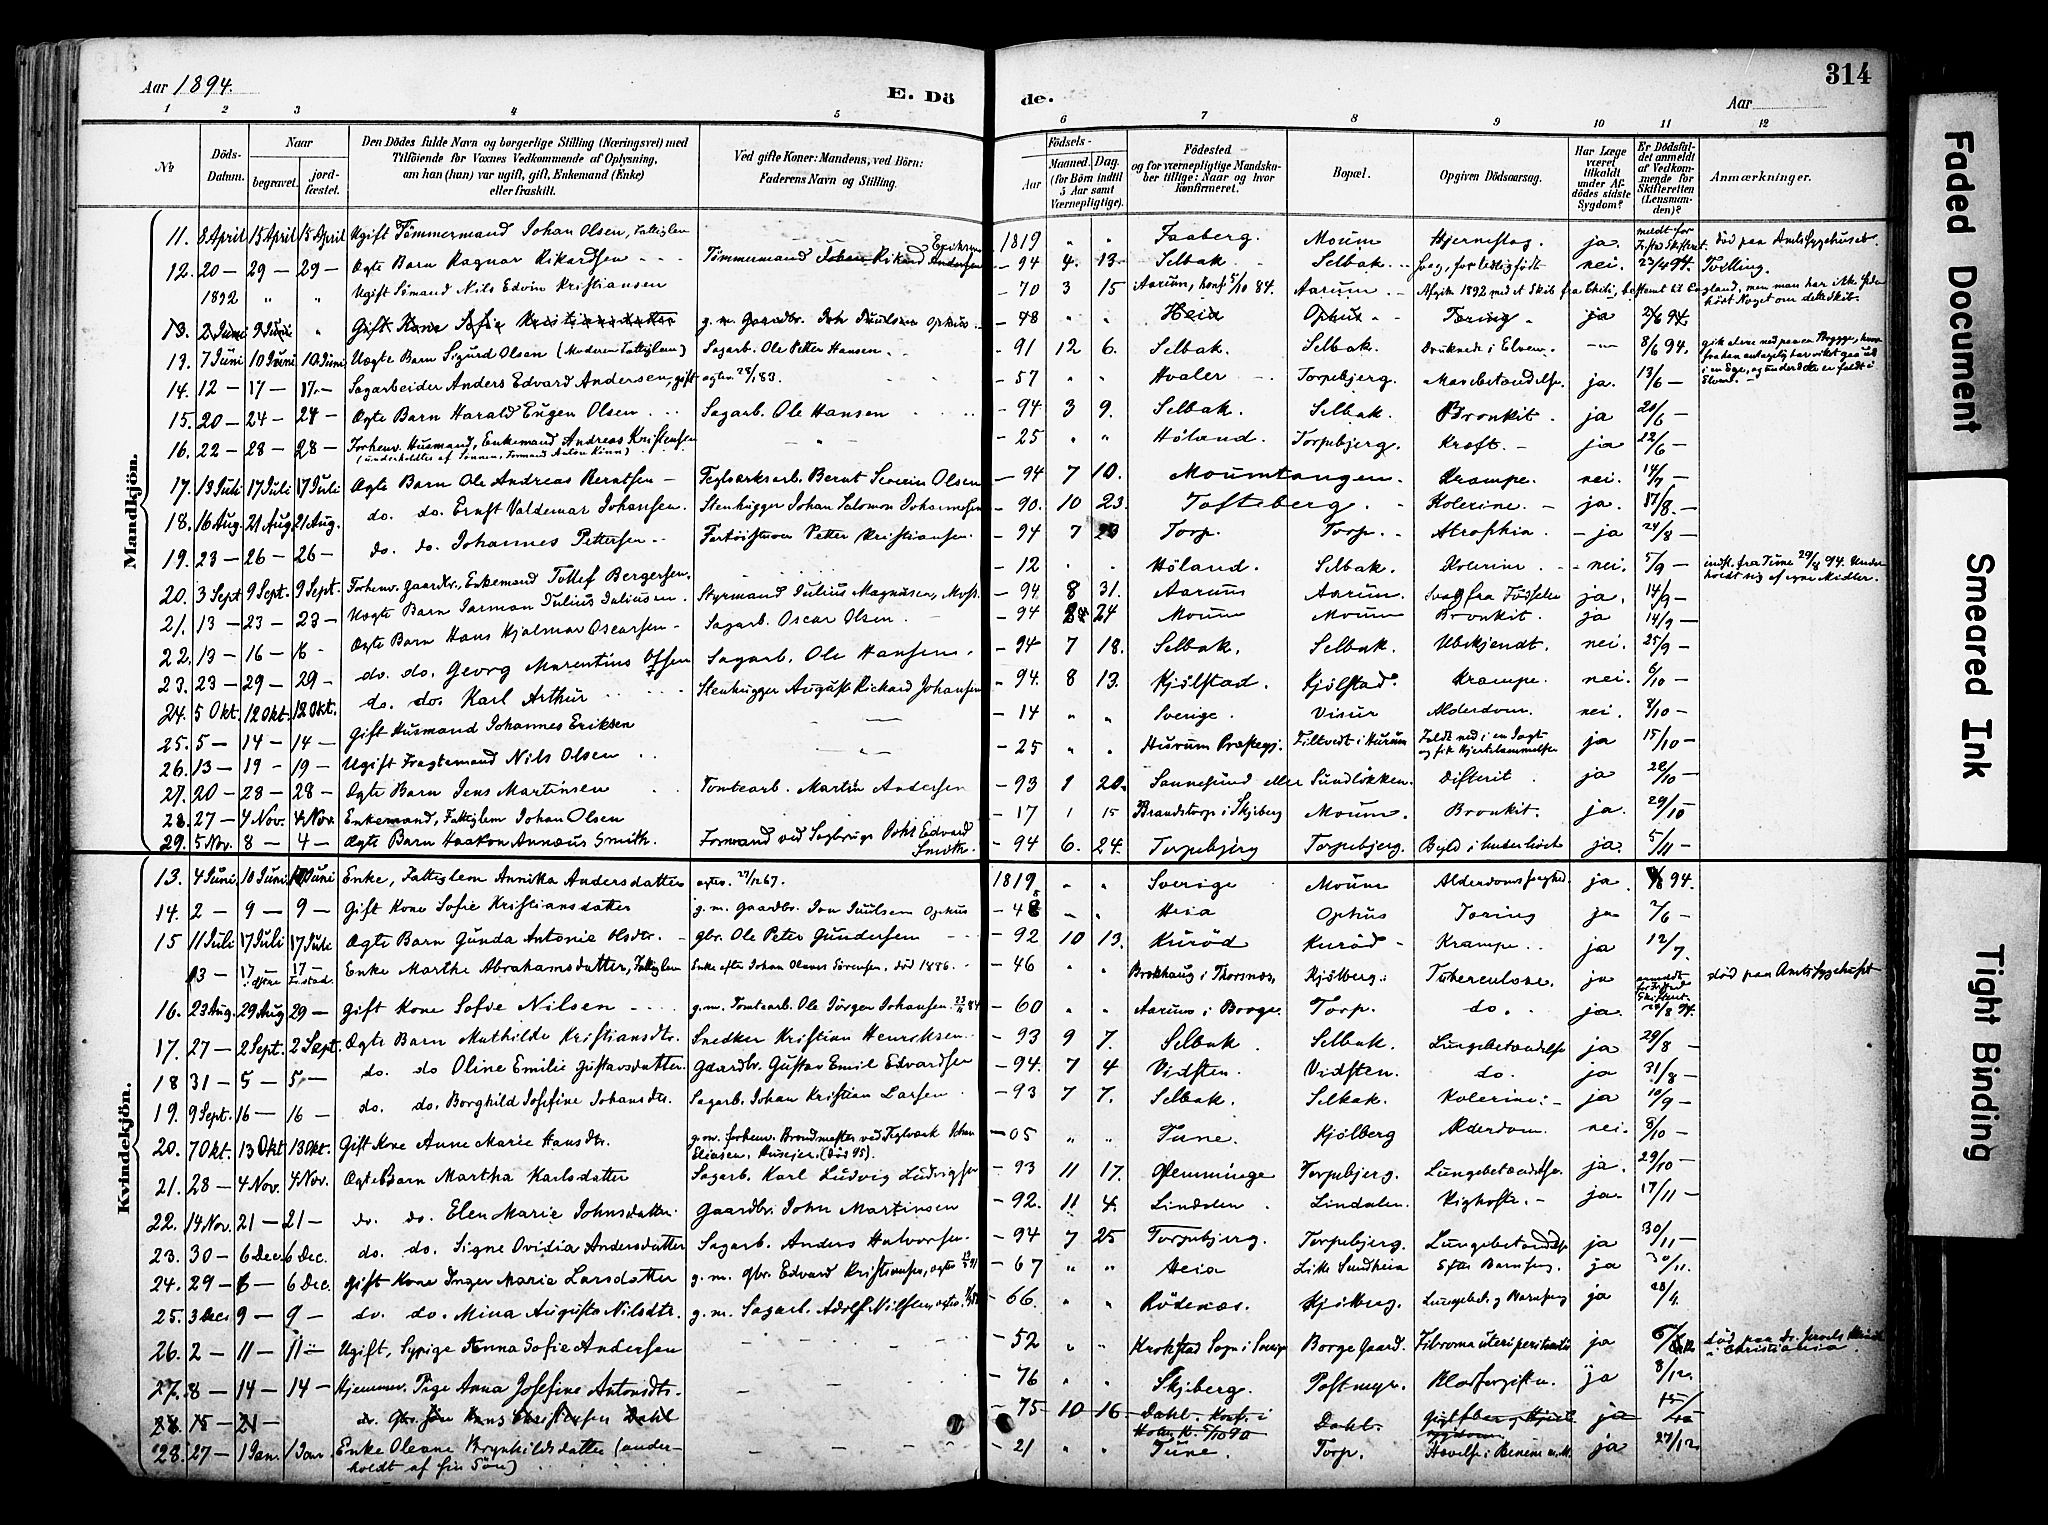 Aar 1894.
E. Döde.
Aar
314
1 2 3 4 5 6 7 8 9 10 11 12
No
Döds-Datum.
Naar
begravet.
jordfæstet.
Den Dödes fulde Navn og borgerlige Stilling (Næringsvei) med
Tilföiende for Voxnes Vedkommende af Oplysning,
om han (hun) var ugift, gift, Enkemand (Enke)
eller fraskilt.
Ved gifte Koner: Mandens, ved Börn:
Faderens Navn og Stilling.
Födsels-
Aar
Maaned. Dag.
(for Börn indtil 5 Aar samt Værnepligtige).
Födested
og for værnepligtige Mandskaber tillige: Naar og hvor konfirmeret.
Bopæl.
Opgiven Dödsaarsag.
Har Læge været tilkaldt under Afdödes sidste Sygdom?
Er Dödsfaldet anmeldt af Vedkommende for Skifteretten (Lensmanden)?
Anmærkninger.
Mandkjön.
11. 8 April 15 April 15 April Ugift Tømmermand Johan Olsen, Fattiglem 1819 " " Faaberg. Moum Hjerneslag. ja. død paa Amtssygehuset.
12. 20 – 29 – 29 – Ægte Barn Ragnar Rikardsen Tømmermand Johan Rikard Andersen Eriksen – 94 4. 13. Selbak. Selbak Svag, for tidlig født nei. 23/4 94. Tvilling.
1892 " " Ugift Sømand Nils Edvin Kristiansen – 70 3 15 Aarum, konf. 5/10 84. Aarum. – Afgik 1892 med et Skib fra Chili, bestemt til England, men man har ikke siden hørt Noget om dette Skib.
13. 2 Juni 9 Juni " Gift Kone Sofie Kristiansdatter g. m. Gaardbr. Iver Juulsen Ophus – 48 " " Heia Ophus Tæring ja 2/6 94.
13. 7 Juni 10 Juni 10 Juni Uægte Barn Sigurd Olsen (Moderen Fattiglem) Sagarb. Ole Petter Hansen. – 91 12 6. Selbak. Selbak. Druknede i Elven. – 8/6 94.
14. 12 – 17 – 17 – Sagarbeider Anders Edvard Andersen, gift – 57 " " Hvaler Torpebjerg. Mavebetændelse ja. 13/6 –
15. 20 – 24 – 24 – Ægte Barn Harald Eugen Olsen Sagarb. Ole Hansen – 94 3 9. Selbak. Selbak. Bronkit. ja 20/6 –
16. 22 – 28 – 28 – Forhenv. Husmand, Enkemand Andreas Kristensen – 25 " " Høland. Torpebjerg. Kræft. – ja 22/6 –
17. 13 Juli 17 Juli 17 Juli Ægte Barn Ole Andreas Berntsen – Teglværksarb. Bernt Severin Olsen – 94 7 10. Moumtangen. Krampe. nei. 14/7 –
18. 16 Aug. 21 Aug. 21 Aug. do. do. Ernst Valdemar Johansen. Stenhugger Johan Salomon Johannesen – 90. 10 23. Tofteberg. Kolerine. – ja. 17/8. –
19. 23 – 26 – 26 – do. do. Johannes Pettersen Petter Kristiansen. – 94 7 Torp. Torp. Atrophia – ja 24/8 –
20. 3 Sept 9 Sept. 9 Sept. Forhenv. Gaardbr., Enkemand Tollef Bergersen. – 12 " Høland. Selbak. Kolerine nei. 5/9 – indfl. fra Tune 29/8 94. Underholdt sig af egne Midler.
21. 13 – 23 – 23 – Uægte Barn Jarman Julius Juliussen. Styrmand Julius Magnussen, Moss. – 94. 8 31. Aarum Aarum. Svag fra Fødselen ja. 14/9 –
22. 13 – 16 – 16 – Ægte Barn Hans Hjalmar Oscarsen – Sagarb. Oscar Olsen. – 94 24 Moum Moum Bronkit. ja 14/9 –
23. 23 – 29 – 29 – do. do. Georg Marentius Olsen Sagarb. Ole Hansen. – 94 7 18. Selbak. Selbak. Ubekjendt. nei. 25/9 –
24. 5 Okt. 12 Okt. 12 Okt. do. do. Karl Arthur Stenhugger August Rickard Johansen – 94. 8 13. Kjølstad. Kjølstad. Krampe. nei. 6/10 –
25. 5 – 14 – 14 – Gift Husmand Johannes Eriksen – 14 " " Sverige. Visur Alderdom. nei. 8/10 –
26. 13 – 19 – 19 – Ugift Fragtemand Nils Olsen – 25 " " Hurum Præstegj. Filtvedt i Hurum Faldt ned i en Jagt og fik ja 15/10 –
27. 20 – 28 – 28 – Ægte Barn Jens Martinsen Tomtearb. Martin Andersen – 93 1 20. Sannesund eller Sundløkken. Difterit. ja 28/10 –
28. 27 – 4 Nov. 4 Nov. Enkemand, Fattiglem Johan Olsen – 17 1 15 Brandstorp i Skjeberg Moum. Bronkit. ja. 29/10
29. 5 Nov. 8 – 4 – Ægte Barn Haakon Annæus Smith. Formand ved Sagbruge Johs Edvard Smith. – 94 6. 24. Torpebjerg Torpebjerg. Byld i ja. 5/11 –
Kvindekjön.
13. 4 Juni 10 Juni Juni Enke, Fattiglem Annika Andersdatter 1819 " " Sverige Moum Alderdomssvaghed. ja 94.
14. 2 – 9 – 9 – Gift Kone Sofie Kristiansdatter g. m. Gaardbr. Iver Juulsen Ophus – 48 " " Heia Ophus Tæring ja 2/6 –
15 11 Juli 17 Juli 17 Juli Ægte Barn Gunda Antonie Olsdtr. Gbr. Ole Peter Gundersen – 92 10 13. Kurød Kurød – Krampe ja 12/7.
13 – 17 17 Enke Marthe Abrahamsdatter, Fattiglem Enke efter Johan Olaves Sørensen, død 1886. – 46 " " Brekhaug i Thorsnæs. Kjølberg. Tuberculose. ja død paa Amtssygehuset
16. 23 Aug. 29 Aug 29 – Gift Kone Sofie Nilsen g. m. Tomtearb. Ole Jørgen Johansen. – 60 " " Aarum i Borge. Torp. do. ja. 28/8 94.
17. 27 – 2 Sept. 2 Sept. Ægte Barn Mathilde Kristiansdt. Snedker Kristian Henriksen. – 93 9 7. Selbak. Selbak. Lungebetændelse ja 29/8 –
18 31 – 5 – 5 – do. do Oline Emilie Gustavsdatter. Gaardbr. Gustav Emil Edvardsen – 94. 7 4 Vidsten. Vidsten. do. ja 31/8 –
19. 9 Sept. 16 – 16 – do. do. Borghild Josefine Johansdt. Sagarb. Johan Kristian Larsen. – 93 7 7. Selbak. Selbak. Kolerine. – ja 10/9 –
20. 7 Okt. 13 Okt 13 Okt. Gift Kone Anne Marie Hansdtr. g. m. forhenv. Brændmester ved Teglværk Johan Eliasen, Huseier. (død 95). – 05 " " Tune. Kjølberg Alderdom. nei. 8/10 –
21. 28 – 4 Nov. 4 Nov. Ægte Barn Martha Karlsdatter Sagarb. Karl Ludvig Ludvigsen – 93 11 17. Glemminge Torpebjerg. Lungebetændelse ja. 29/10 –
22. 14 Nov. 21 – 21 – do. do. Elen Marie Johnsdatter. Gaardbr. John Martinsen – 92. 11 4. Lindalen Lindalen. Kighoste. – ja. 17/11 –
23. 30 – 6 Dec. 6 Dec. do. do. Signe Ovidia Andersdatter Sagarb. Anders Halvorsen. – 94 7 25 Torpebjerg. Torpebjerg. Lungebetændelse ja 30/11 –
24. 29 – 6 – 6 Dec. Gift Kone Inger Marie Larsdatter g. m. Gbr. Edvard Kristiansen, – 67 " " Heia Lille Sundheia Efter Barnseng. ja 30/11.
25. 3 Dec 9 – 9 – do. do. Mina Augusta Nilsdtr. g. m. Sagarb. Adolf Nilsen, – 66. " " Rødenæs. Kjølberg. Lungebet. og Barnseng ja
26. 2 – 11 – 11 – Ugift, Sypige Anna Sofie Andersen – 52 " Krokstad Sogn i Sverige Borge Gaard. Fibroma uteri peritonitis ja død paa i Christiania.
27. 8 – 14 – 14 – Hjemmev. Pige Anna Josefine Antonsdtr. – 76 " Skjeberg. Postmyr. Blodforgiftn. ja 8/12.
28. 15 – 21 – do. Gbr. Søn Hans Christensen Dahl – 75 10 16 Dahl. Konf. i 5/10 90 Dahl. ja 15/
28. 27 – 1 Jan. 1 Jan. Enke Oleane Brynhildsdatter (underholdt af sin Søn) – 21 " " Tune. Torp. Hævelse i Benene ja 27/12
Faded Document
Smeared Ink
Tight Binding